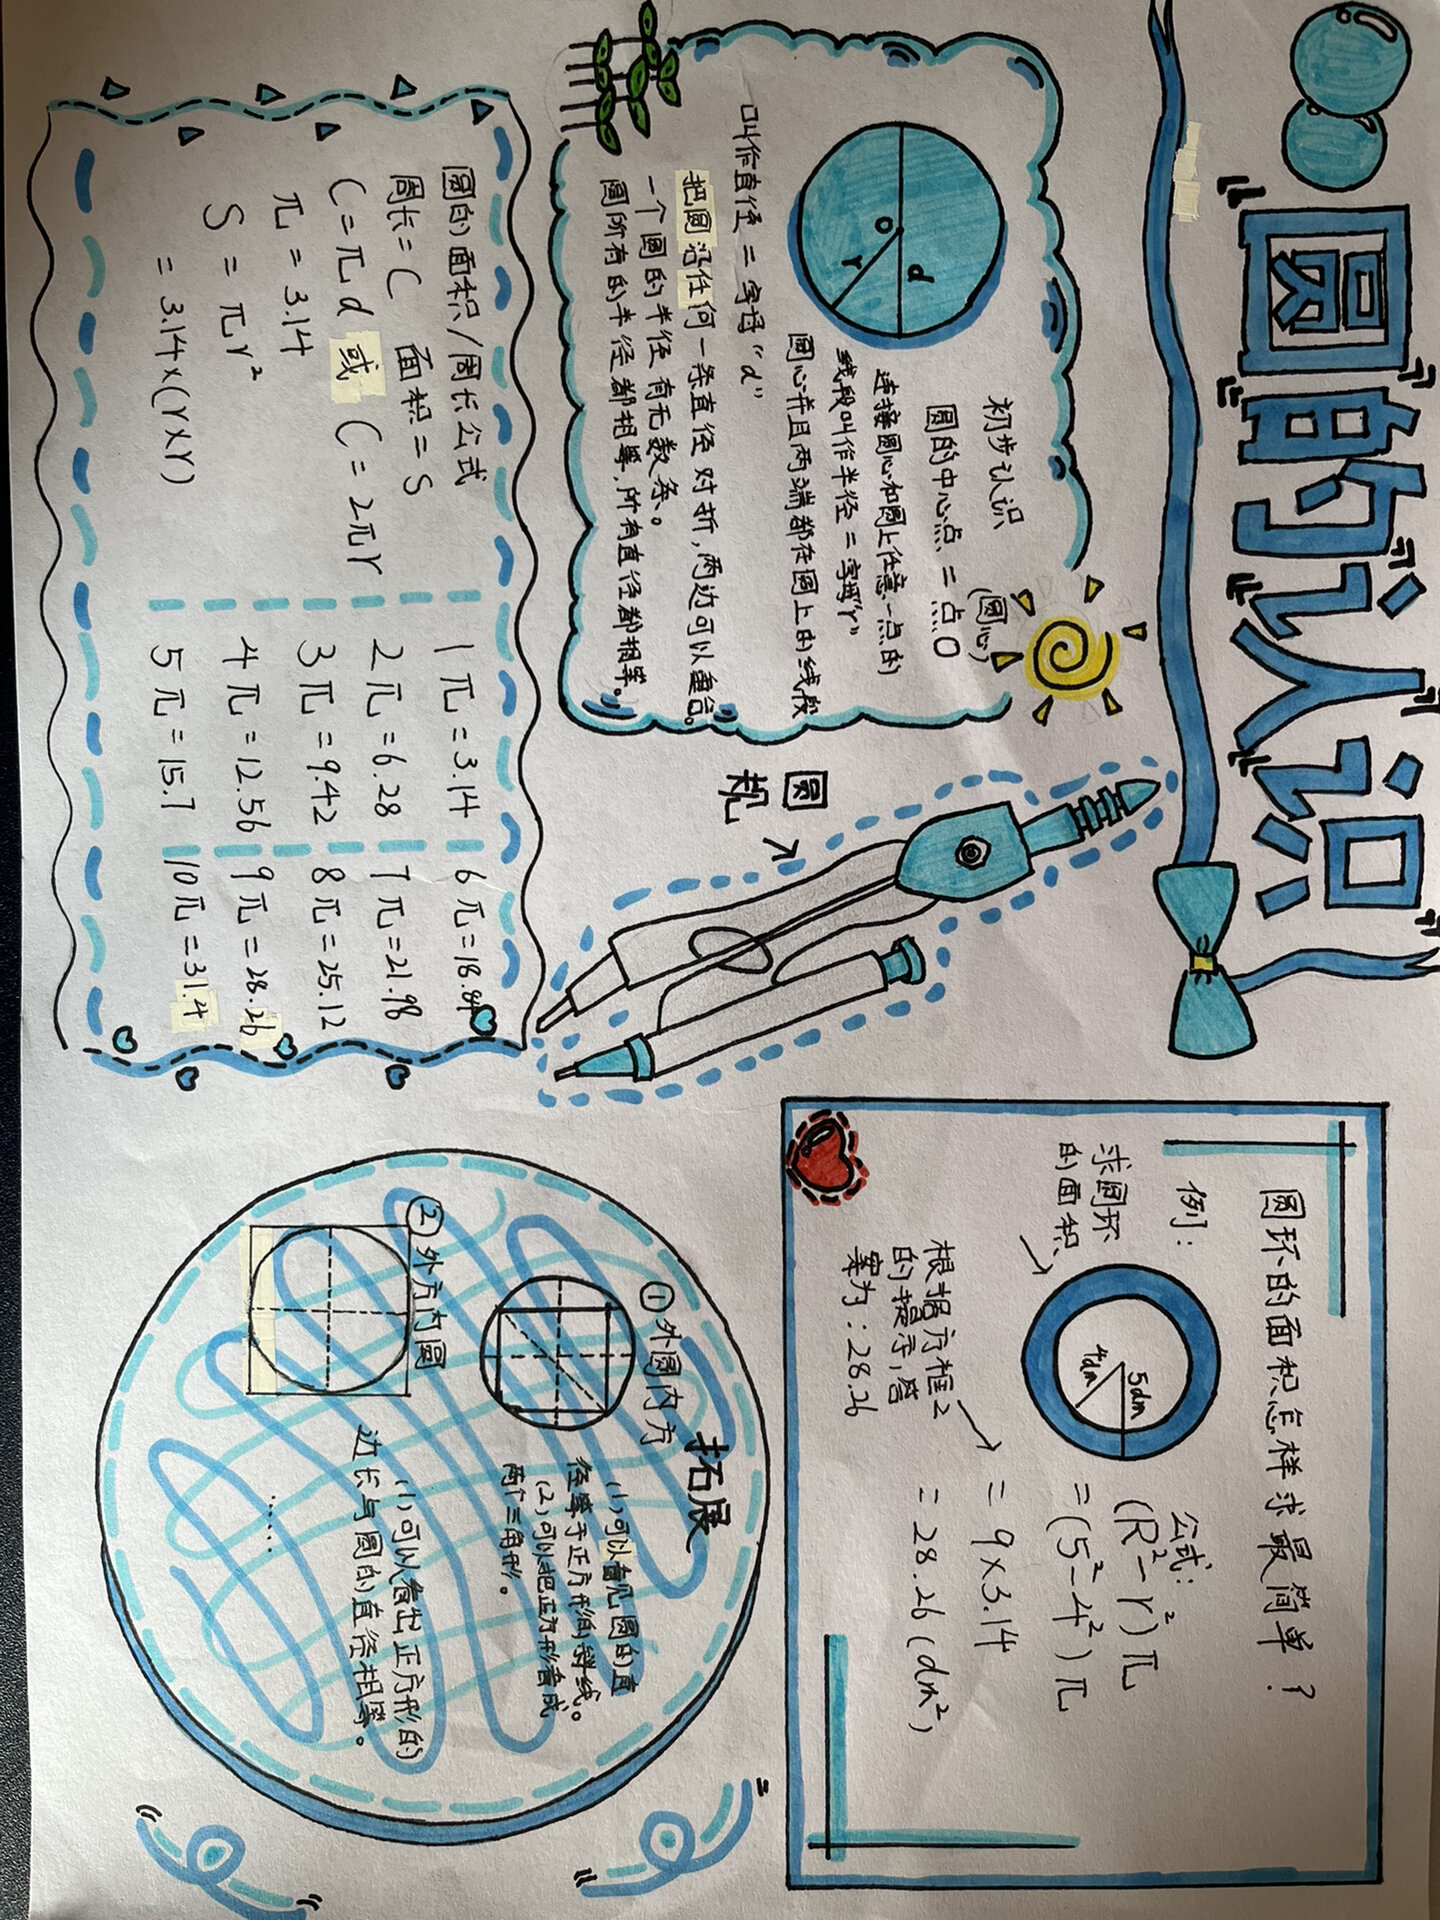 圆的认识
初步认识
圆的中心点 = 点O
(圆心)
连接圆心和圆上任意一点的
线段叫作半径 = 字母“r”
圆心并且两端都在圆上的线段
叫作直径 = 字母“d”
o
r
d
把圆沿任何一条直径对折，两边可以重合。
一个圆的半径有无数条。
圆所有的半径都相等，所有直径都相等。
圆的面积/周长公式
周长=C 面积=S
C=πd 或 C=2πr
π=3.14
S=πr²
=3.14×(r×r)
1π=3.14
2π=6.28
3π=9.42
4π=12.56
5π=15.7
6π=18.84
7π=21.98
8π=25.12
9π=28.26
10π=31.4
圆
规
圆环的面积怎样求最简单?
例:
求圆环
的面积
5dm
4dm
公式:
(R²-r²)π
=(5²-4²)π
=9×3.14
=28.26(dm²)
根据方框2
的提示,答
案为:28.26
拓展
①外圆内方
(1)可以看见圆的直
径等于正方形的斜线。
(2)可以把正方形看成
两个三角形。
②外方内圆
(1)可以看出正方形的
边长与圆的直径相等。
……